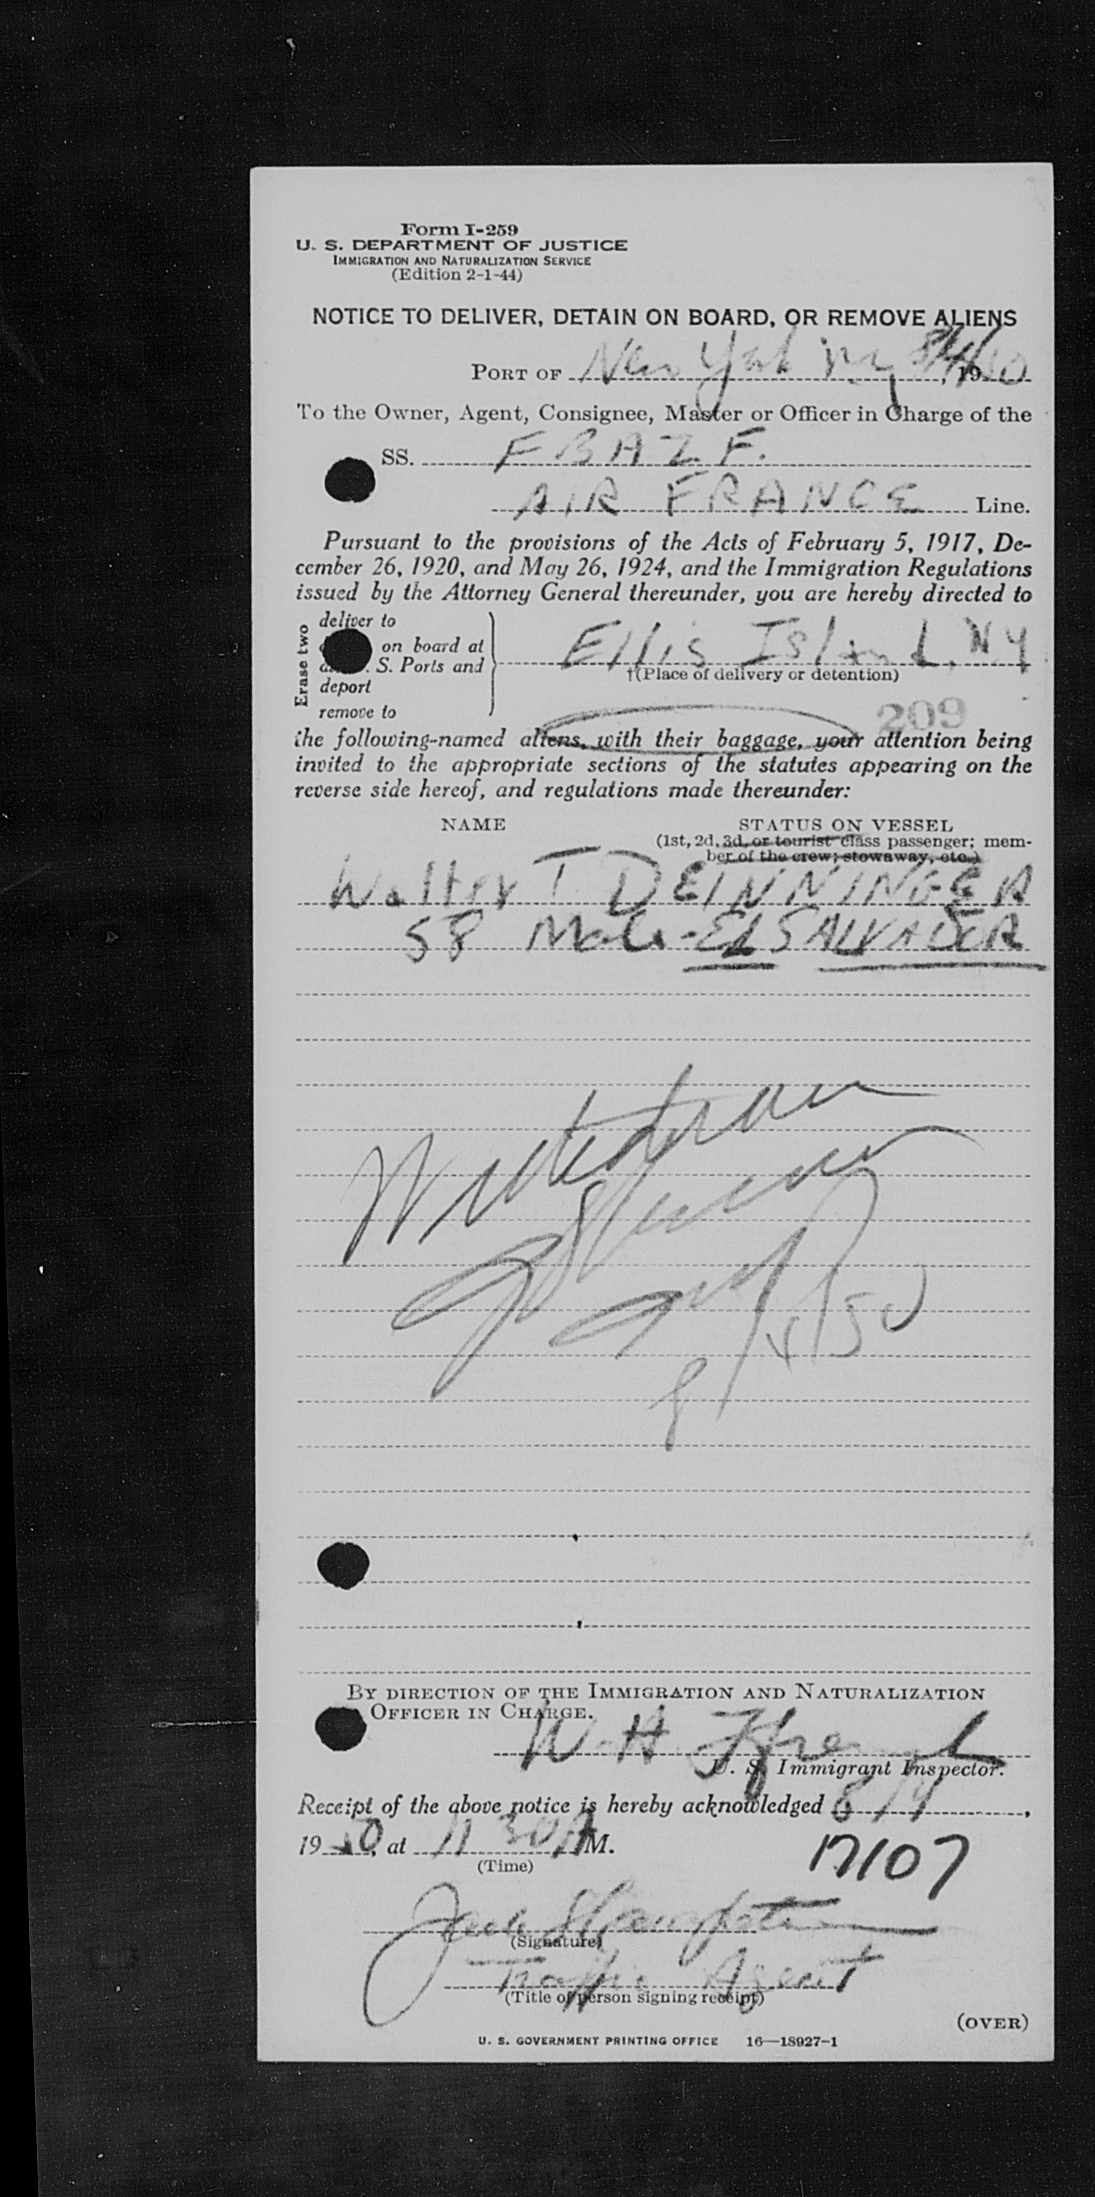 Form I-259
U. S. DEPARTMENT OF JUSTICE
IMMIGRATION AND NATURALIZATION SERVICE
(Edition 2-1-44)
NOTICE TO DELIVER, DETAIN ON BOARD, OR REMOVE ALIENS
PORT OF New York NY 8/4/, 1950
To the Owner, Agent, Consignee, Master or Officer in Charge of the
SS. FBAZF.
AIR FRANCE Line.
Pursuant to the provisions of the Acts of February 5, 1917, De-
cember 26, 1920, and May 26, 1924, and the Immigration Regulations
issued by the Attorney General thereunder, you are hereby directed to
Erase two
deliver to
on board at
S. Ports and
deport
remove to
Ellis Island, NY
†(Place of delivery or detention)
209
the following-named aliens, with their baggage, your attention being
invited to the appropriate sections of the statutes appearing on the
reverse side hereof, and regulations made thereunder:
NAME STATUS ON VESSEL
(1st, 2d, 3d, or tourist class passenger; mem-
ber of the crew; stowaway, etc.)
Walter T DEINNINGER
58 Male - EL SALVADOR
Withdrawn
8/4/50
BY DIRECTION OF THE IMMIGRATION AND NATURALIZATION
OFFICER IN CHARGE.
W. H.
U. S. Immigrant Inspector.
Receipt of the above notice is hereby acknowledged 8/4,
1950, at 11 30 AM.
(Time)
17107
Jack
(Signature)
Traffic Agent
(Title of person signing receipt)
(OVER)
U. S. GOVERNMENT PRINTING OFFICE 16—18927-1